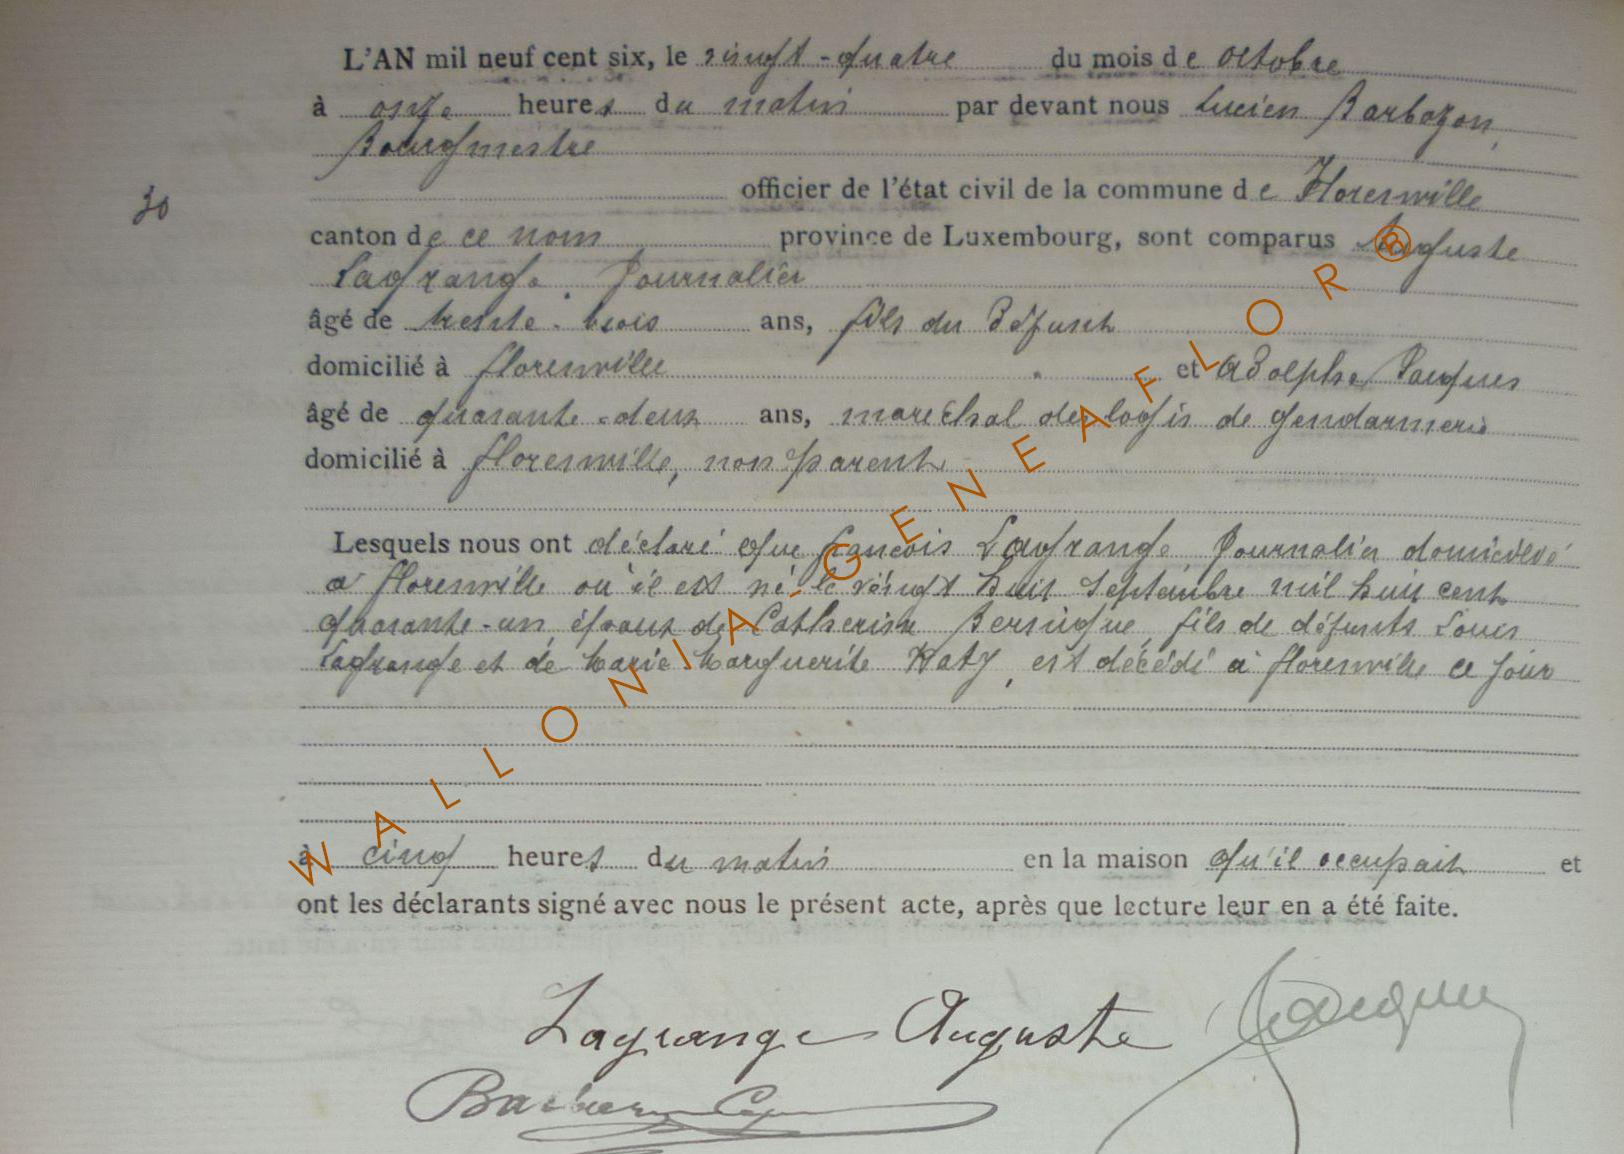 L'AN mil neuf cent six, le vingt-quatre du mois de octobre
à onze heures du matin par devant nous Lucien Barbozon,
Bourgmestre
officier de l'état civil de la commune de Florenville
30
canton de ce nom province de Luxembourg, sont comparus Auguste
Lagrange. Journalier
âgé de trente-trois ans, fils du Défunt
domicilié à florenville et adolphe Jacques
âgé de quarante-deux ans, maréchal des logis de gendarmerie
domicilié à florenville, non parent
Lesquels nous ont déclaré que françois Lagrange Journalier domicilié
a florenville où il est né le vingt huit septembre mil huit cent
quarante-un époux de Catherine fils de défunts Louis
Lagrange et de Marie Marguerite est décédé a florenville ce jour
à cinq heures du matin en la maison qu'il occupait et
ont les déclarants signé avec nous le présent acte, après que lecture leur en a été faite.
Lagrange Auguste Jacques
WALLONIA-GENEAFLOR®